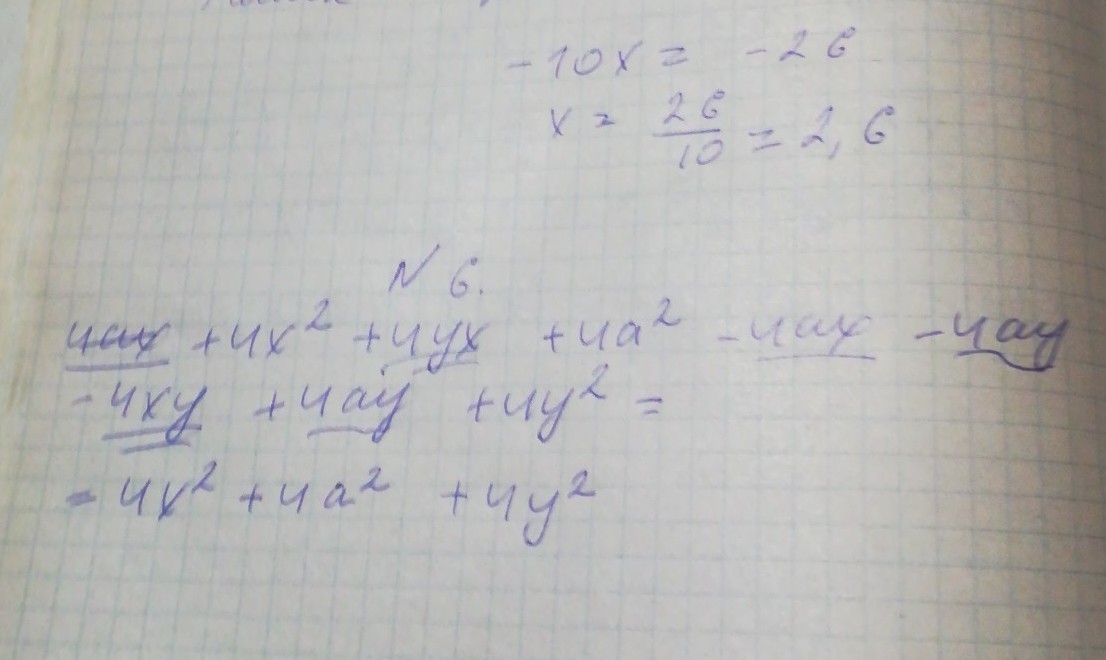 -10x = -26
x = 26/10 = 2,6
N 6.
4ax + 4x² + 4yx + 4a² - 4ax - 4ay
- 4xy + 4ay + 4y² =
= 4x² + 4a² + 4y²